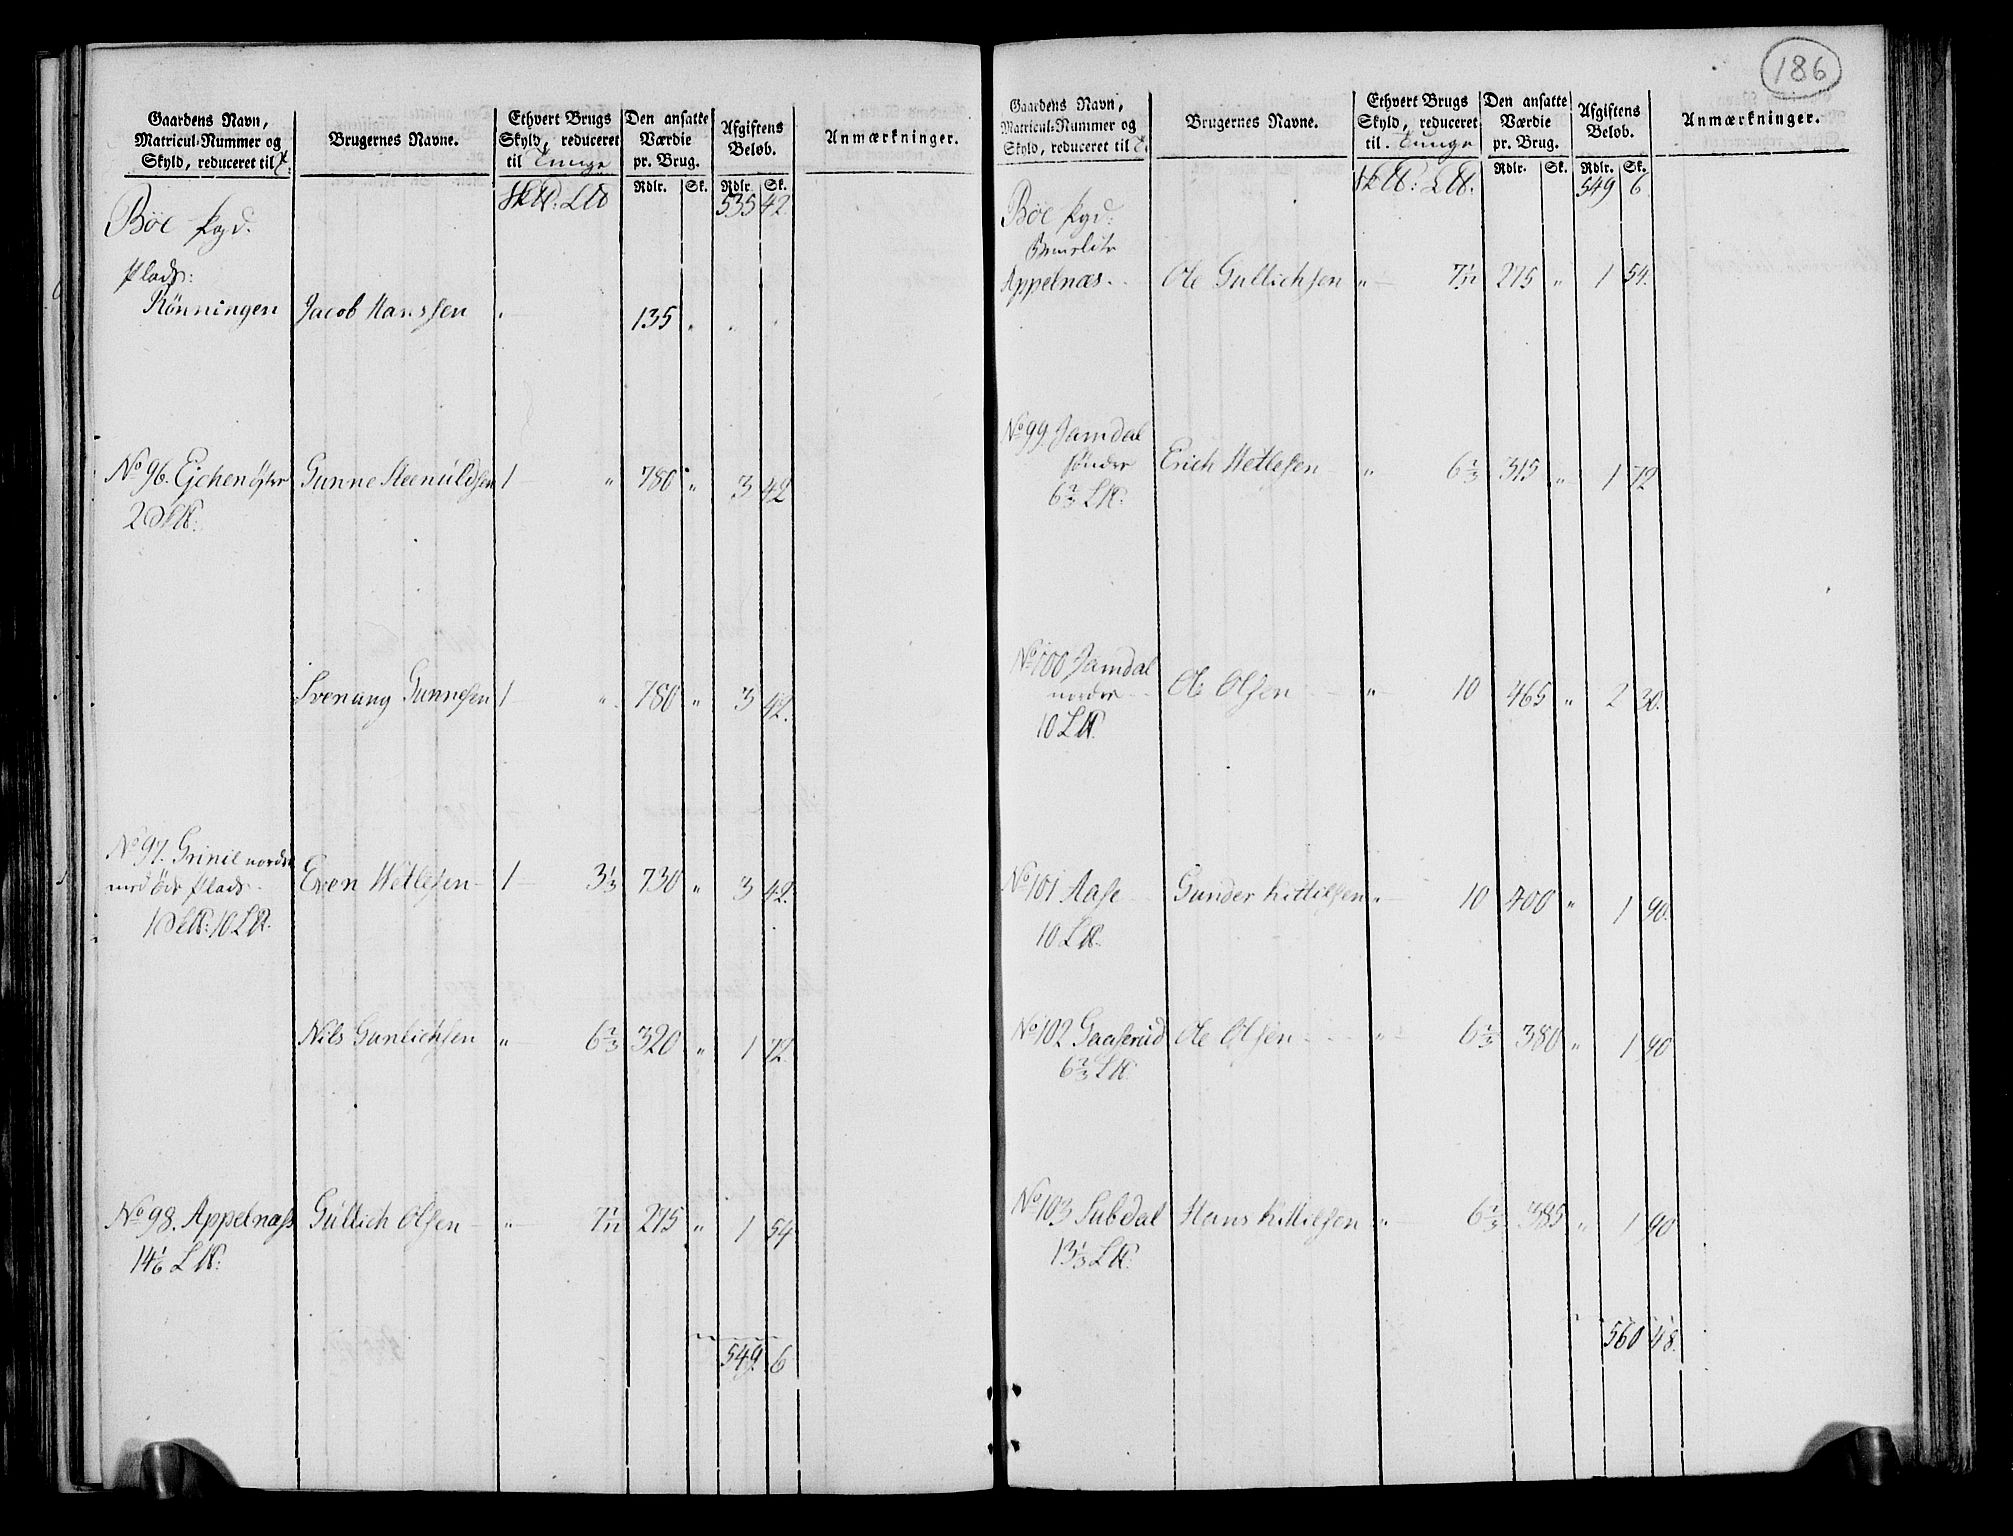 Gaardens Navn,
Matricul-Nummer og
Skyld, reduceret til T.
Brugernes Navne.
Ethvert Brugs
Skyld, reduceret
til Tunge
Den ansatte
Værdie
pr. Brug.
Afgiftens
Beløb.
Anmærkninger.
Rdlr. Sk. Rdlr. Sk.
535 42
Böe
Plads:
Rönningen Jacob Hanssen " 135 " " "
No 96. Ejchen öster Gunne Steenuldsen 1 " 780 " 3 42
2
Svenung Gunnesen 1 " 780 " 3 42.
No 97. Grinie nordre
med öde Plads
Even Wetlesen 1 3 1/3 730 " 3 42.
Nils Gunlichsen " 6 2/3 320 " 1 72.
No 98. Appelnæss Gullich Olsen " 7 1/12 275 " 1 54
14 1/6
549. 6
186
Gaardens Navn,
Matricul-Nummer og
Skyld, reduceret til T.
Brugernes Navne.
Ethvert Brugs
Skyld, reduceret
til Tunge
Den ansatte
Værdie
pr. Brug.
Afgiftens
Beløb.
Anmærkninger.
Rdlr. Sk. Rdlr. Sk.
549 6
Böe
Appelnæs Ole Gullichsen " 7 1/12 275 " 1 54.
No 99. Jamdal
sönder
6 2/3
Erich Wetlesen " 6 2/3 315 " 1 72
No 100 Jamdal
nordre
10
Ole Olsen " 10 465 " 2 30.
No 101 Aase Gunder Kittilsen " 10 400 " 1 90.
10
No 102 Gaaserud Ole Olsen " 6 2/3 380 " 1 90
6 2/3
No 103 Subdal Hans Kittilsen " 6 2/3 385 " 1 90
13 1/3
560 48.